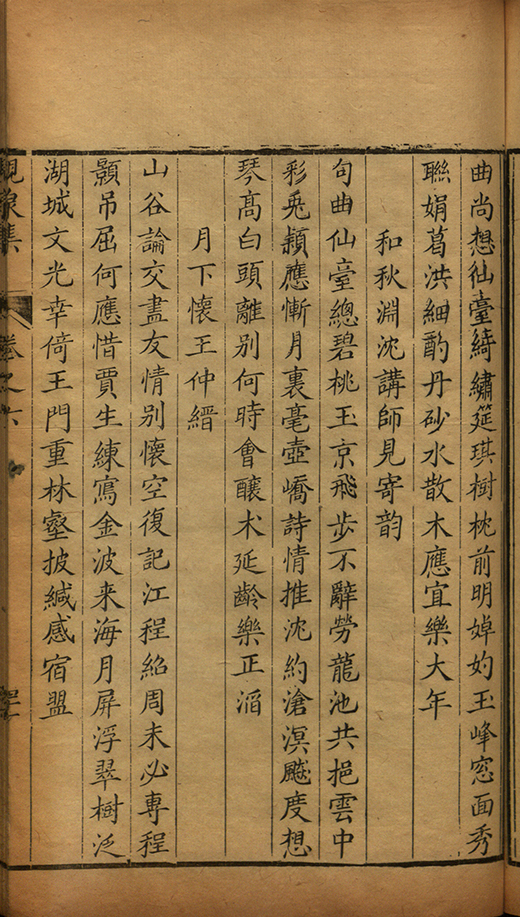 曲尚想仙臺綺繡筵琪樹枕前明婥妁玉峰窓面秀
聯娟葛洪細酌丹砂水散木應宜樂大年
和秋淵沈講師見寄韵
句曲仙臺總碧桃玉京飛步不辭勞龍池共挹雲中
彩兎穎應慚月裏毫壺嶠詩情推沈約滄溟飈度想
琴高白頭離別何時會釀术延齡樂正滔
月下懷王仲縉
山谷論交盡友情別懷空復記江程紹周未必專程
顥吊屈何應惜賈生練寫金波来海月屏浮翠樹泛
湖城文光幸倚王門重林壑披緘感宿盟
卷之六